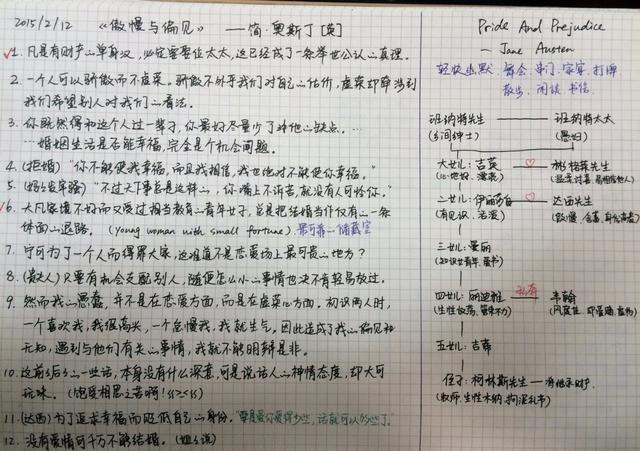 2015/2/12 《傲慢与偏见》 ——简·奥斯丁[英]
1. 凡是有财产的单身汉，必定需要位太太，这已经成了一条举世公认的真理。
2. 一个人可以骄傲而不虚荣。骄傲不外乎我们对自己的估价，虚荣却牵涉到
我们希望别人对我们的看法。
3. 你既然得和这个人过一辈子，你最好尽量少了解他的缺点。…
…婚姻生活是否能幸福，完全是个机会问题。
4. (拒婚) "你不能使我幸福，而且我相信，我也绝对不能使你幸福。"
5. (妈妈发牢骚) "不过天下事总是这样的，你嘴上不诉苦，就没有人可怜你。"
6. 大凡家境不好而又受过相当教育的青年女子，总是把结婚当作仅有的一条
体面的退路。 (young woman with small fortune) 最可靠的储藏室
7. 宁可为了一个人而得罪大家，这难道不是恋爱场上最可贵的地方？
8. 只要有机会支配别人，随便怎么小的事情也决不肯轻易放过。
9. 然而我的愚蠢，并不是在恋爱方面，而是在虚荣心方面。初识两人时，
一个喜欢我，我很高兴，一个怠慢我，我就生气。因此造成了我的偏见和
无知，遇到与他们有关的事情，我就不能明辨是非。
10. 这前前后后的一些话，本身没有什么深意，可是说话人的神情态度，却大可
玩味。 (饱受相思之苦啊！
11. (达西) 为了追求幸福而贬低自己的身份。"要是爱你爱得少些，话就可以多些了。"
12. 没有爱情可千万不能结婚。
Pride And Prejudice
— Jane Austen
轻快幽默 舞会、串门、家宴、打牌
散步、阅读、书信
班纳特先生 —— 班纳特太太
(乡间绅士) (愚妇)
大女儿：吉英 彬格莱先生
(心地好、漂亮)
二女儿：伊丽莎白 达西先生
(有见识、活泼)
三女儿：曼丽
四女儿：丽迪雅 私奔 韦翰
五女儿：吉蒂
侄子：柯林斯先生